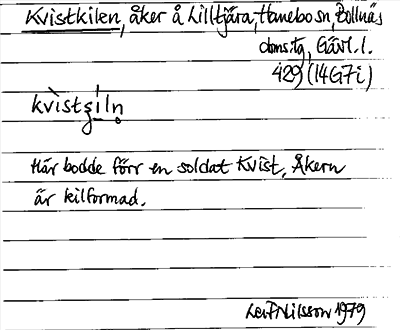 Kvistkilen, åker å Lilltjära, Hanebo sn, Bollnäs
domsag, Gävl. l.
429 (14G7i)
kvistʂiln̥
Här bodde förr en soldat Kvist. Åkern
är kilformad.
Leif Nilsson 1979